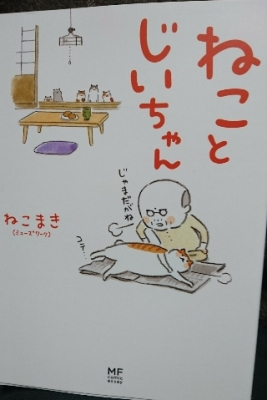 ねこと
じいちゃん
じゃまだがね
コテ…
ねこまき
(ミューズワーク)
MF